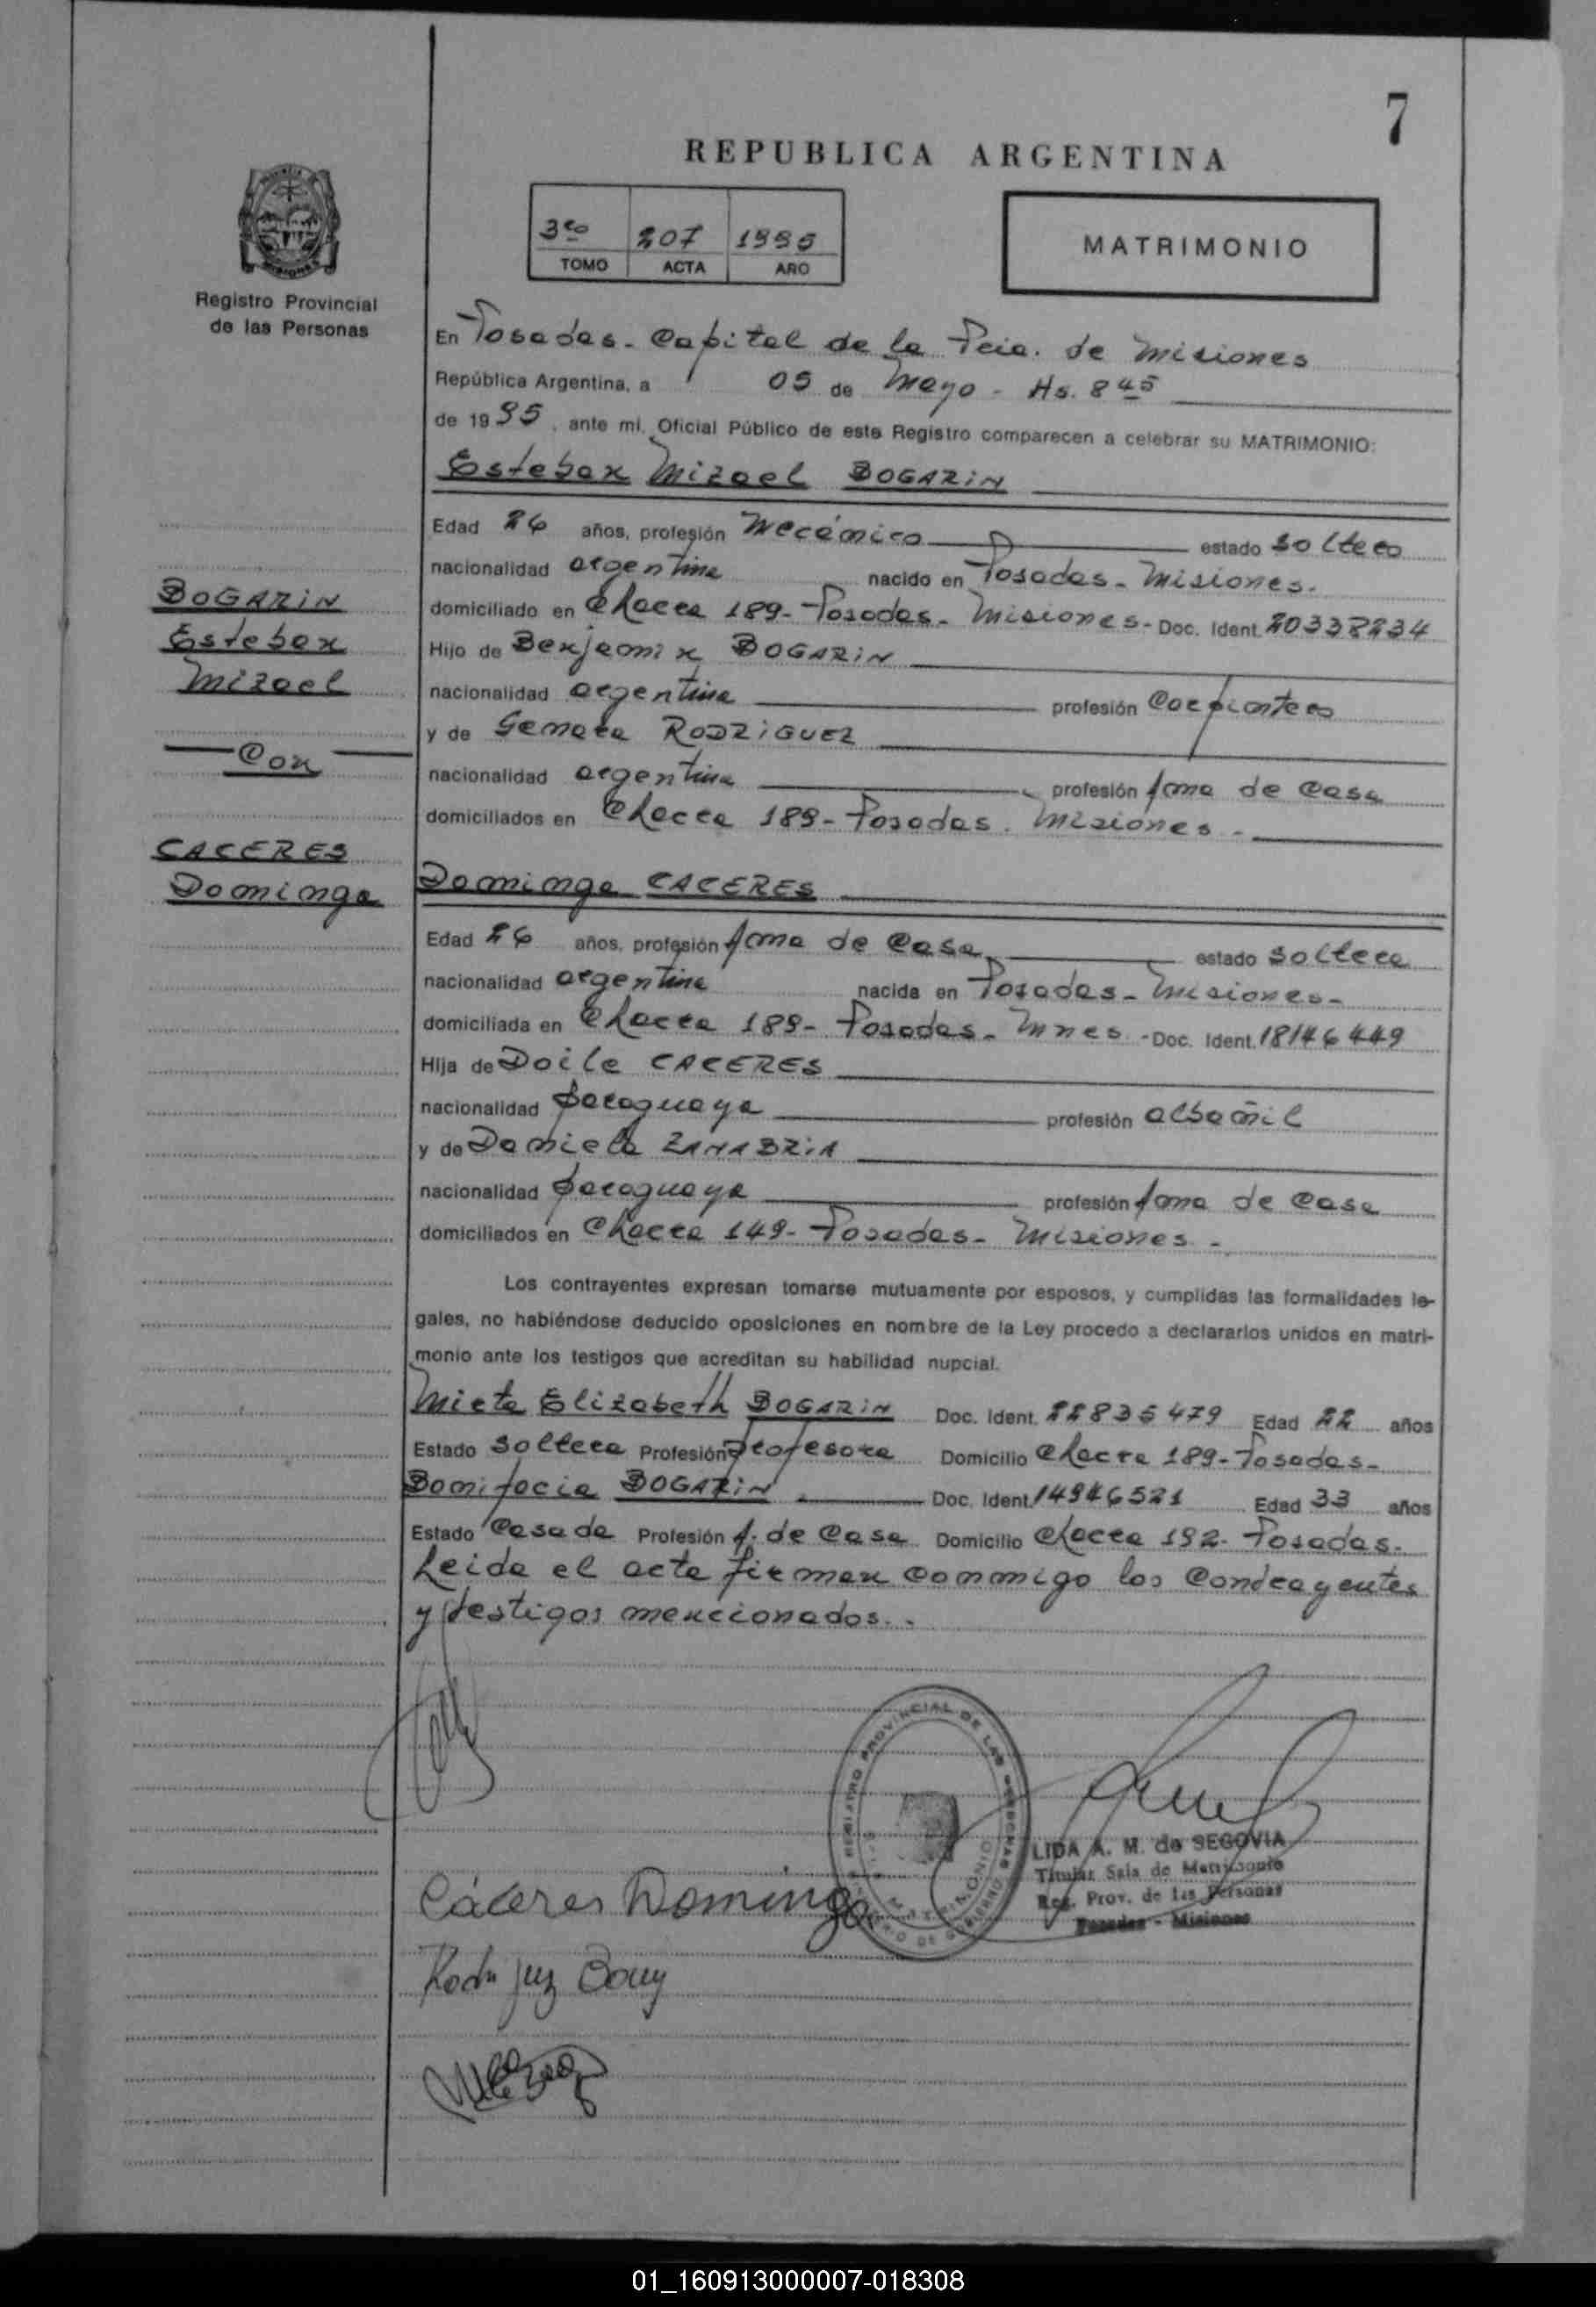 7
REPUBLICA ARGENTINA
3ro 207 1995
TOMO ACTA AÑO
MATRIMONIO
Registro Provincial
de las Personas
En Posadas - Capital de la Pcia. de Misiones
República Argentina, a 05 de Mayo - Hs. 8 45
de 1995, ante mi, Oficial Público de este Registro comparecen a celebrar su MATRIMONIO:
Esteban Mizael BOGARIN
Edad 26 años, profesión Mecánico estado soltero
nacionalidad argentina nacido en Posadas - Misiones.
domiciliado en Chacra 189 - Posadas - Misiones - Doc. Ident. 20338234
Hijo de Benjamin BOGARIN
nacionalidad argentina profesión Carpintero
y de Genara RODRIGUEZ
nacionalidad argentina profesión ama de casa
domiciliados en Chacra 189 - Posadas. Misiones -
BOGARIN
Esteban
Mizael
Con
CACERES
Dominga
Dominga CACERES
Edad 26 años, profesión ama de casa estado soltera
nacionalidad argentina nacida en Posadas - Misiones -
domiciliada en Chacra 189 - Posadas - Mnes. - Doc. Ident. 18146449
Hija de Doile CACERES
nacionalidad paraguaya profesión albañil
y de Daniela ZANABRIA
nacionalidad paraguaya profesión ama de casa
domiciliados en Chacra 149 - Posadas - Misiones -
Los contrayentes expresan tomarse mutuamente por esposos, y cumplidas las formalidades le-
gales, no habiéndose deducido oposiciones en nombre de la Ley procedo a declararlos unidos en matri-
monio ante los testigos que acreditan su habilidad nupcial.
Mirta Elizabeth BOGARIN Doc. Ident. 22835479 Edad 22 años
Estado soltera Profesión Profesora Domicilio Chacra 189 - Posadas -
Bonifacia BOGARIN Doc. Ident. 14946521 Edad 33 años
Estado Casada Profesión A. de casa Domicilio Chacra 192 - Posadas.
Leida el acta firman conmigo los contrayentes
y testigos mencionados..
LIDA A. M. de SEGOVIA
Titular Sala de Matrimonio
Reg. Prov. de las Personas
Posadas - Misiones
Cáceres Dominga
01_160913000007-018308